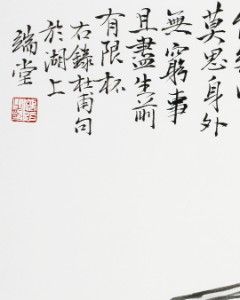 莫思身外
無窮事
且盡生前
有限杯
右錄杜甫句
於湖上
端堂